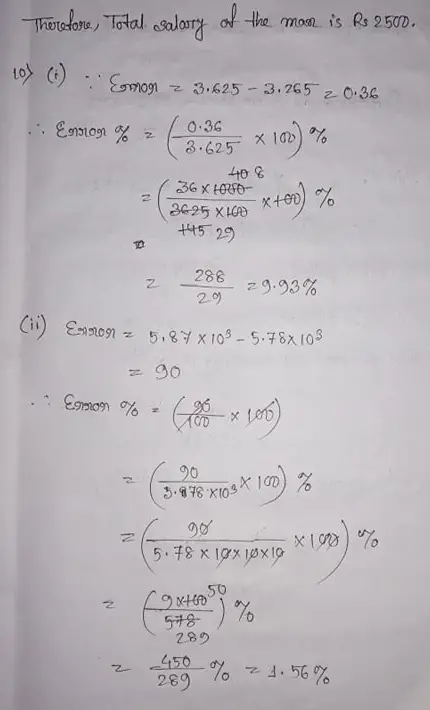 Therefore, Total salary of the man is Rs 2500.
10) (i) ∵ Error = 3.625 - 3.265 = 0.36
∴ Error % = (0.36/3.625 × 100) %
= (36 × 1000/3625 × 100 × 100) %
40 8
145 29
= 288/29 = 9.93%
(ii) Error = 5.87 × 10³ - 5.78 × 10³
= 90
∴ Error % = (90/100 × 100)
= (90/5.78 × 10³ × 100) %
= (90/5.78 × 10 × 10 × 10 × 100) %
= (9 × 100/578) %
50
289
= 450/289 % = 1.56%